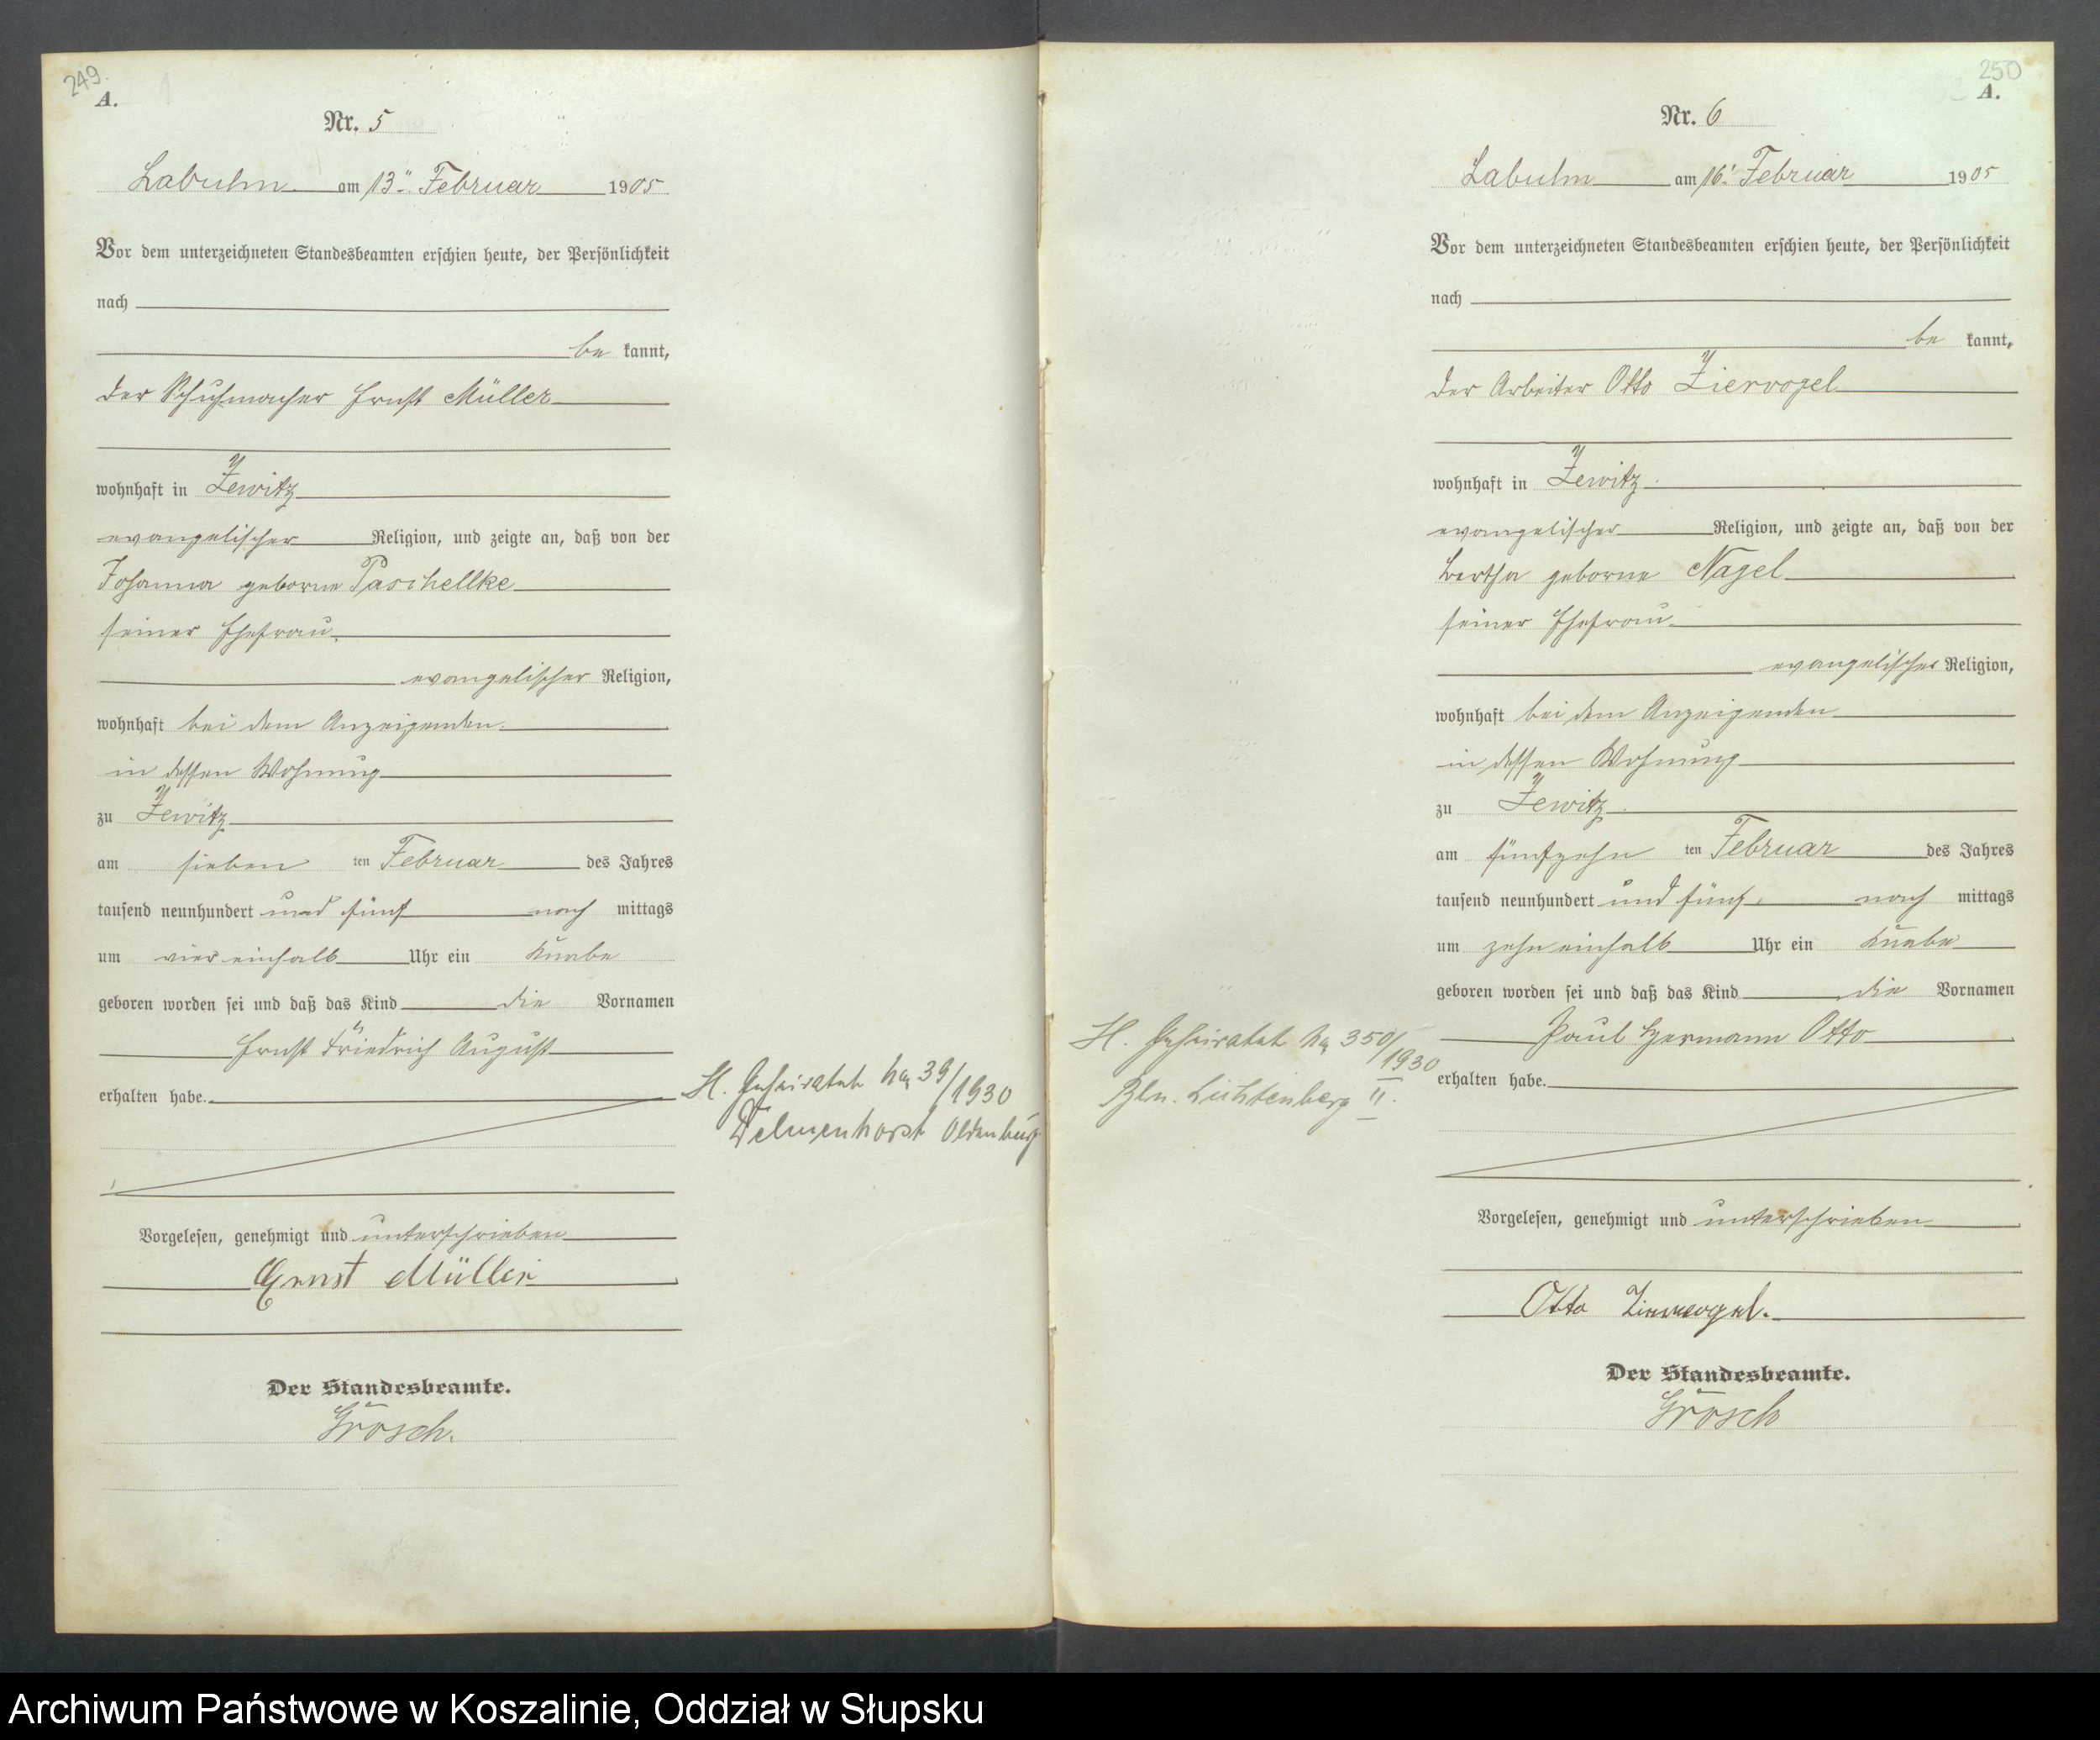 249.
A.
Nr. 5
Labuhn am 13ten Februar 1905
Vor dem unterzeichneten Standesbeamten erschien heute, der Persönlichkeit
nach
be kannt,
der Schuhmacher Ernst Müller
wohnhaft in Zewitz
evangelischer Religion, und zeigte an, daß von der
Johanna geborne Paschellke
seiner Ehefrau
evangelischer Religion,
wohnhaft bei dem Anzeigenden
in dessen Wohnung
zu Zewitz
am sieben ten Februar des Jahres
tausend neunhundert und fünf nach mittags
um vier einhalb Uhr ein Knabe
geboren worden sei und daß das Kind die Vornamen
Ernst Friedrich August
erhalten habe.
H. Geheiratet 39/1930
Delmenhorst Oldenburg
Vorgelesen, genehmigt und unterschrieben
Ernst Müller
Der Standesbeamte.
Grosch.
250
A.
Nr. 6
Labuhn am 16ten Februar 1905
Vor dem unterzeichneten Standesbeamten erschien heute, der Persönlichkeit
nach
be kannt,
der Arbeiter Otto Ziervogel
wohnhaft in Zewitz
evangelischer Religion, und zeigte an, daß von der
Bertha geborne Nagel
seiner Ehefrau
evangelischer Religion,
wohnhaft bei dem Anzeigenden
in dessen Wohnung
zu Zewitz
am fünfzehn ten Februar des Jahres
tausend neunhundert und fünf nach mittags
um zehn einhalb Uhr ein Knabe
geboren worden sei und daß das Kind die Vornamen
Paul Hermann Otto
erhalten habe.
H. Geheiratet 350/1930
Bln. Lichtenberg II.
Vorgelesen, genehmigt und unterschrieben
Otto Ziervogel.
Der Standesbeamte.
Grosch
Archiwum Państwowe w Koszalinie, Oddział w Słupsku